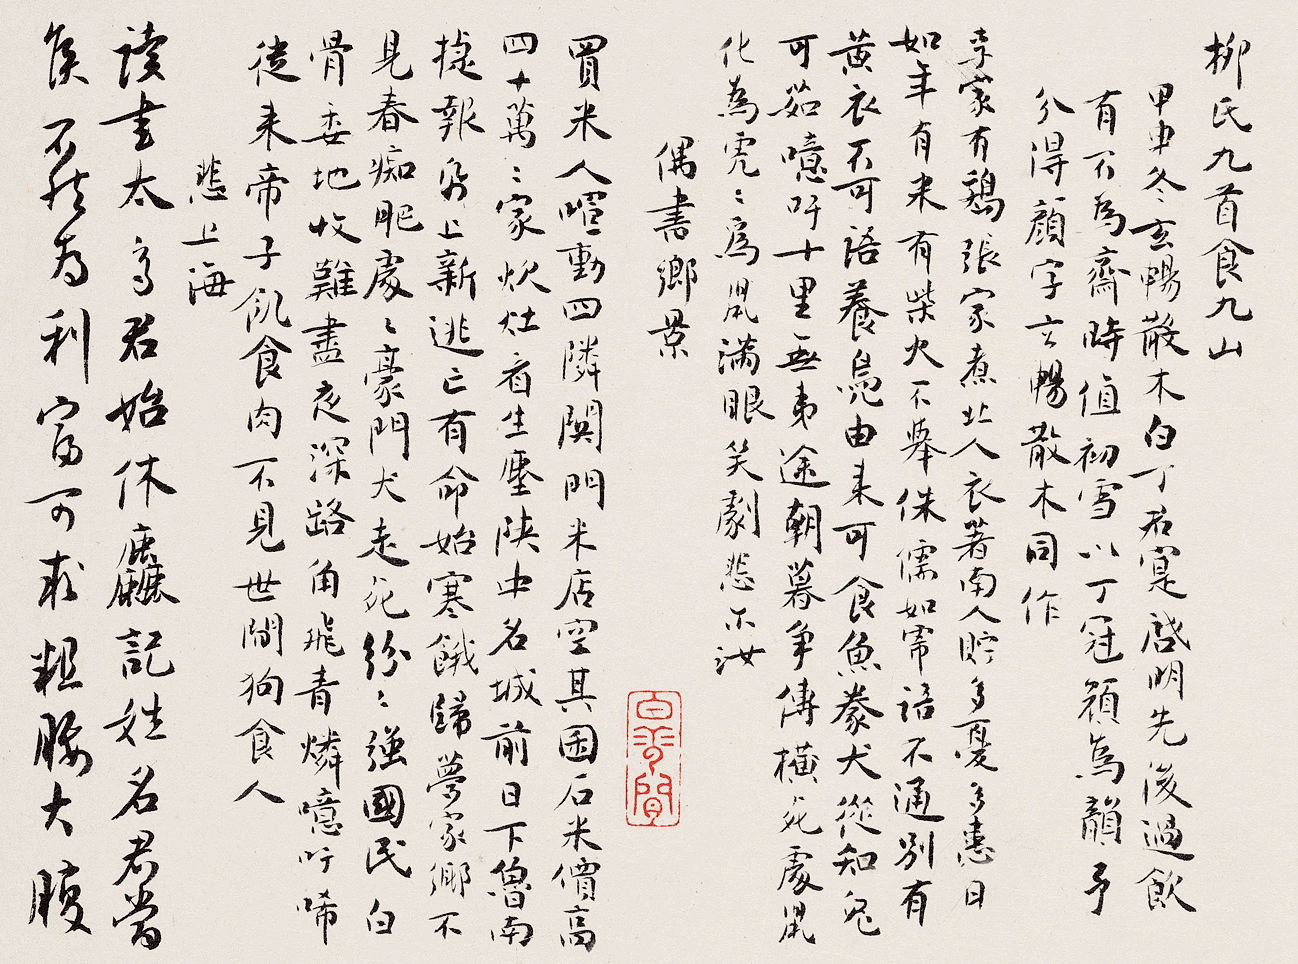 柳氏九首食九山
甲申冬玄暢散木白丁君寔啟明先後過飲
有不為齋時值初雪以丁冠頂為韻予
分得顏字玄暢散木同作
李家有鵝張家煮北人衣著南人貯多憂多恚日
如年有米有柴火不舉侏儒如常語不通別有
黃衣不可語養鳥由來可食魚豢犬從知
可茹噫吁十里無東途朝暮爭傳橫死處鼠
化為虎虎為鼠滿眼笑劇悲不汝
偶書鄉景
買米人喧動四鄰闤門米店空其囷石米價高
四十萬萬家炊灶看生塵陝中名城前日下魯南
捷報昂上新逃亡有命始寒餓歸夢家鄉不
見春痴肥處處豪門犬走死紛紛強國民白
骨委地收難盡夜深路角飛青燐噫吁唏
從來帝子飢食肉不見世間狗食人
悲上海
讀書太高君始休麤記姓名君當
侯不然為利富可求粗腰大腹
白雲間